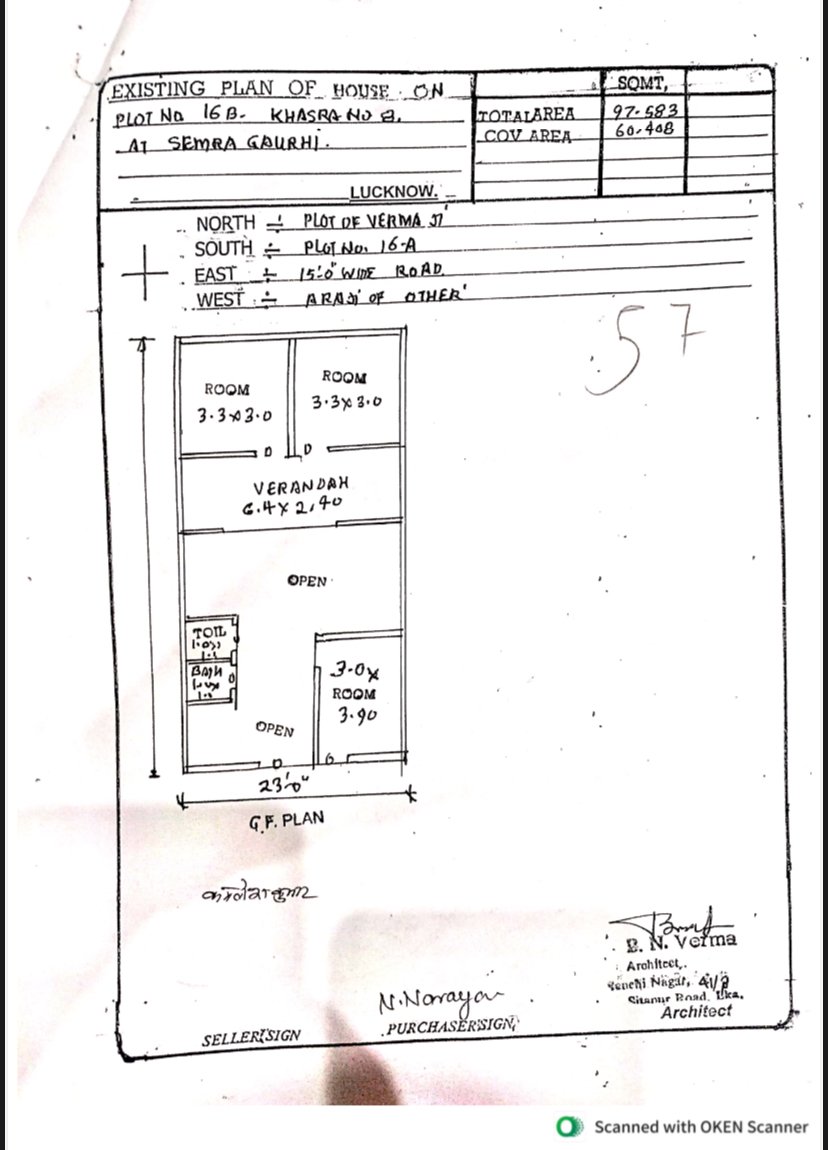 EXISTING PLAN OF HOUSE ON
PLOT NO 16B. KHASRA NO 8.
AT SEMRA GAURHI.
LUCKNOW.
SQMT,
TOTAL AREA 97.583
COV AREA 60.408
NORTH ÷ PLOT OF VERMA JI
SOUTH ÷ PLOT No. 16-A
EAST ÷ 15'-0" WIDE ROAD
WEST ÷ ARAJI OF OTHER'
57
ROOM
3.3x3.0
ROOM
3.3x3.0
D D
VERANDAH
6.4x2.40
OPEN
TOIL
BATH
3.0x
ROOM
3.90
OPEN
D
23'-0"
G.F. PLAN
N. Narayan
B. N. Verma
Architect,
Nagar,
Sitapur Road, Lko.
Architect
SELLER SIGN
PURCHASER SIGN
Scanned with OKEN Scanner